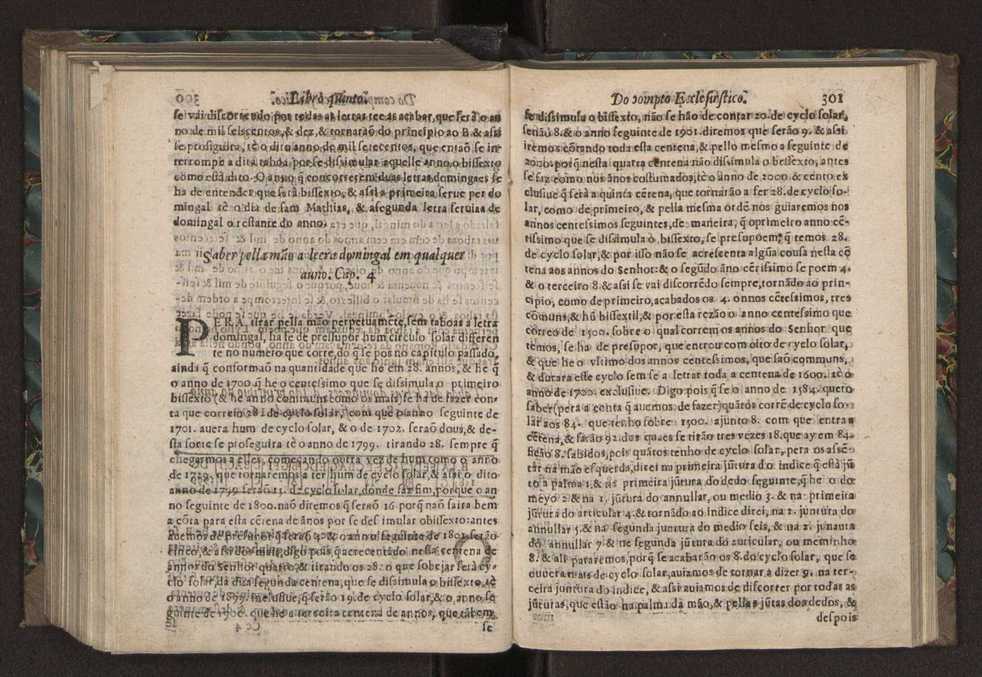 300 Libro quinto.
se vai discorrendo por todas as letras tee as acabar, que será o an
no de mil seiscentos, & dez, & tornarão do principio ao B. & assi
se proseguira, tè o dito anno de mil setecentos, que entaõ se in
terrompe a dita taboa, por se dissimular aquelle anno o bissexto
como está dito. O anno q̃ concorrerem duas letras domingaes se
ha de entender que será bissexto, & assi a primeira serue per do
mingal tè o dia de sam Mathias, & a segunda letra seruira de
domingal o restante do anno.
Saber pella mão a letra domingal em qualquer
anno. Cap. 4
PERA, tirar pella mão perpetuamẽte, sem taboas a letra
domingal, ha se de presupor hum circulo solar differen
te no numero que corre, do q̃ se pos no capitulo passado,
ainda q̃ conformaõ na quantidade que he em 28. annos, & he q̃
o anno de 1700 q̃ he o centesimo que se dissimula o primeiro
bissexto (& he anno commum como os mais) se ha de fazer con-
ta que correm 28. de cyclo solar, com que o anno seguinte de
1701. auera hum de cyclo solar, & o de 1702. seraõ dous, & de-
sta sorte se proseguira tè o anno de 1799. tirando 28. sempre q̃
chegarmos a elles, começando outra vez de hum, como o anno
de 1729. que tornaremos a ter hum de cyclo solar, & assi o dito
anno de 1799 serão 15. de cyclo solar, donde faz fim, porque o an
no seguinte de 1800. naõ diremos q̃ seraõ 16 porq̃ naõ saira bem
a cõta para esta cẽtena de ãnos por se dessimular o bissexto: antes
auemos de presupor q̃ seraõ 4. & o anno seguinte de 1801. serão
cinco, & assi os mais, digo pois q̃ acrecentado nesta centena de
annos do Senhor quatro, & tirando os 28. o que sobejar será cy-
clo solar da dita segunda centena, que se dissimula o bissexto, tè
o anno de 1899. inclusiue, q̃ serão 19. de cyclo solar, & o anno se
guinte de 1900. que he a terceira centena de annos, que tãbem
Cc 4 se
Do compto Ecclesiastico. 301
se dissimula o bissexto, não se hão de contar 20. de cyclo solar,
senão 8. & o anno seguinte de 1901. diremos que serão 9. & assi
iremos cõtando toda esta centena, & pello mesmo a seguinte de
2000. porq̃ nesta quarta centena não dissimula o bissexto, antes
se faz como nos ãnos costumados, tè o anno de 2100. & cento ex
clusiue q̃ será a quinta cẽtena, que tornarão a ser 28. de cyclo so-
lar, como de primeiro, & pella mesma ordẽ nos guiaremos nos
annos centesimos seguintes, de maneira, q̃ o primeiro anno cẽ-
tesimo que se dissimula o bissexto, se presupoem q̃ temos 28.
de cyclo solar, & por isso não se acrescenta algũa cousa nesta cẽ
tena aos annos do Senhor: & o segũdo ãno cẽtesimo se poem 4.
& o terceiro 8. & assi se vai discorrẽdo sempre, tornãdo ao prin-
cipio, como de primeiro, acabados os 4. annos cẽtesimos, tres
comuns, & hũ bissextil, & por esta rezão o anno centesimo que
correo de 1500. sobre o qual correm os annos do Senhor que
temos, se ha de presupor, que entrou com oito de cyclo solar,
& que he o vltimo dos annos centesimos, que saõ communs,
& durara este cyclo sem se a letrar toda a centena de 1600. tè o
anno de 1700. exclusiue. Digo pois q̃ se o anno de 1584. quero
saber (pera a conta q̃ auemos de fazer) quãtos corrẽ de cyclo so-
lar aos 84. que tenho sobre 1500. ajunto 8. com que entra a
cẽtena, & serão 92. dos quaes se tirão tres vezes 28. que ay em 84.
ficão 8. sabidos, pois quãtos tenho de cyclo solar, pera os assẽ-
tar na mão esquerda, direi na primeira jũtura do indice q̃ está jũ
to a palma 1. & na primeira jũtura do dedo seguinte, q̃ he o do
meyo 2. & na 1. jũtura do annullar, ou medio 3. & na primeira
jũtura do articular 4. & tornãdo ao indice direi, na 2. juntura do
annullar 5. & na segunda juntura do medio seis, & na 2. junauta
do annullar 7. & ne segunda jũtura do auricular, ou meminho
8. & ali pararemos, porq̃ se acabarão os 8. do cyclo solar, que se
ouuera mais de cyclo solar, auiamos de tornar a dizer 9. na ter-
ceira juntura do indice, & assi auiamos de discorrer por todas as
jũturas, que estão na palma da mão, & pellas jũtas dos dedos, &
despois